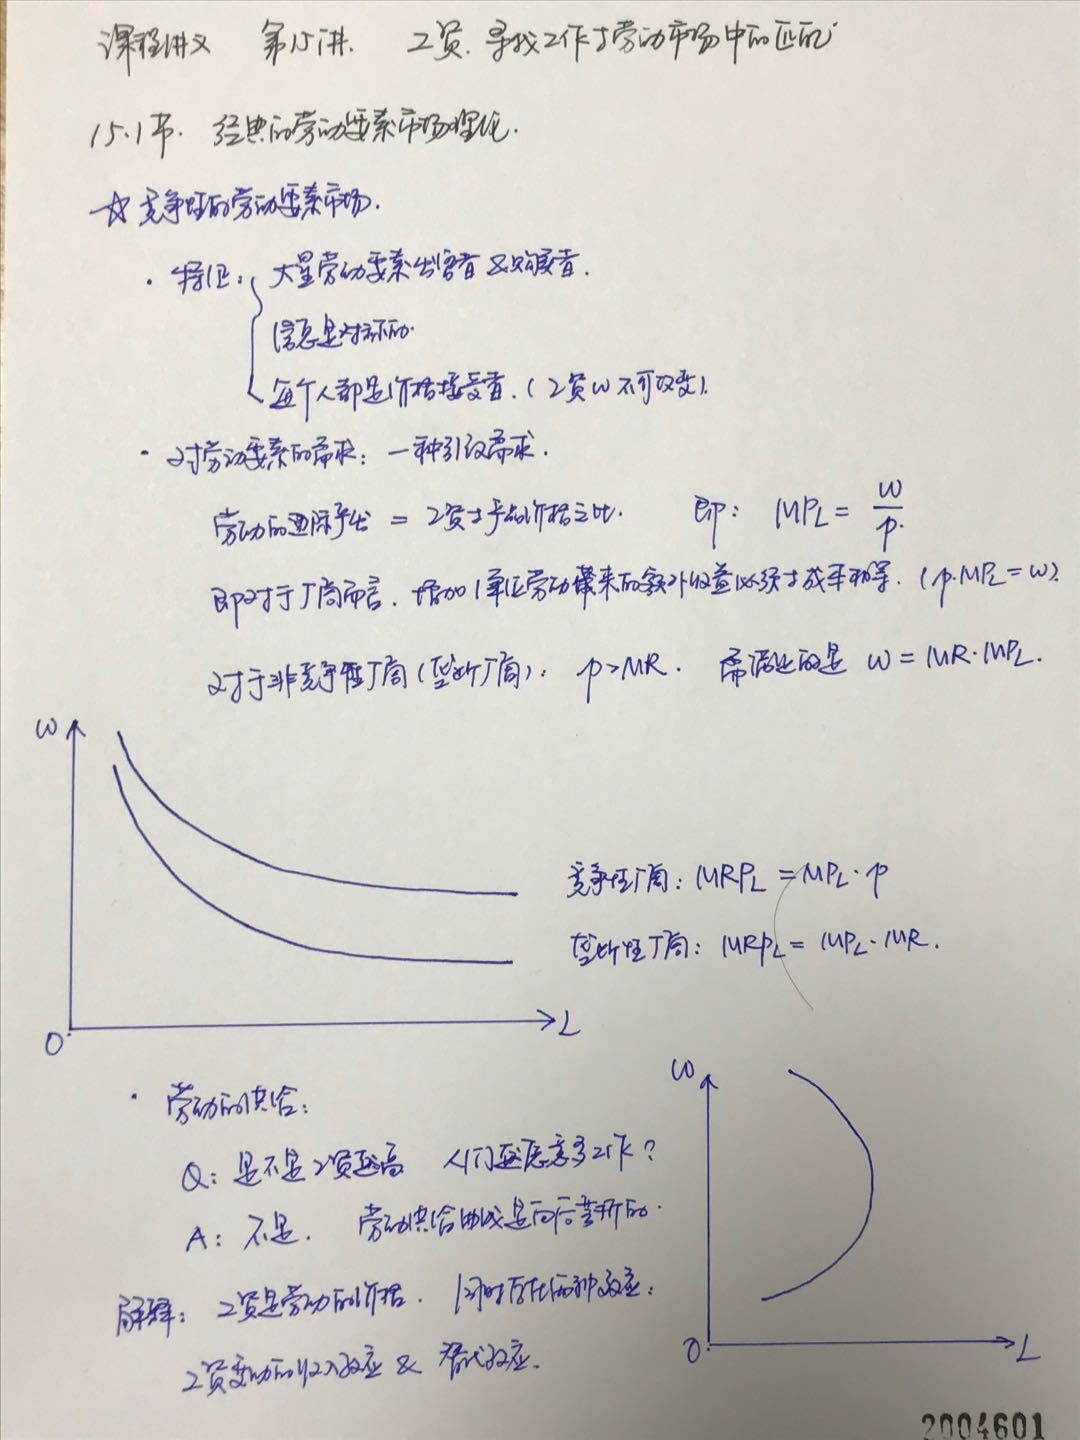 课程讲义 第15讲. 工资.寻找工作与劳动市场中的匹配
15.1节. 经典的劳动要素市场理论.
☆ 竞争性的劳动要素市场.
· 特征: 大量劳动要素出售者&购买者.
信息是对称的.
每个人都是价格接受者.(工资w不可改变).
· 对劳动要素的需求: 一种引致需求.
劳动的边际产出 = 工资与产品价格之比. 即: MPL = w/p.
即对于厂商而言. 增加1单位劳动带来的额外收益必须与成本相等. (p·MPL = w).
对于非竞争性厂商(垄断厂商): p>MR. 需满足的是 w = MR·MPL.
w
竞争性厂商: MRPL = MPL·p
垄断性厂商: MRPL = MPL·MR.
O L
· 劳动的供给:
w
Q: 是不是工资越高 人们越愿意多工作?
A: 不是. 劳动供给曲线是向后弯折的.
解释: 工资是劳动的价格. 同时存在两种效应:
O L
工资变动的收入效应 & 替代效应.
2004601